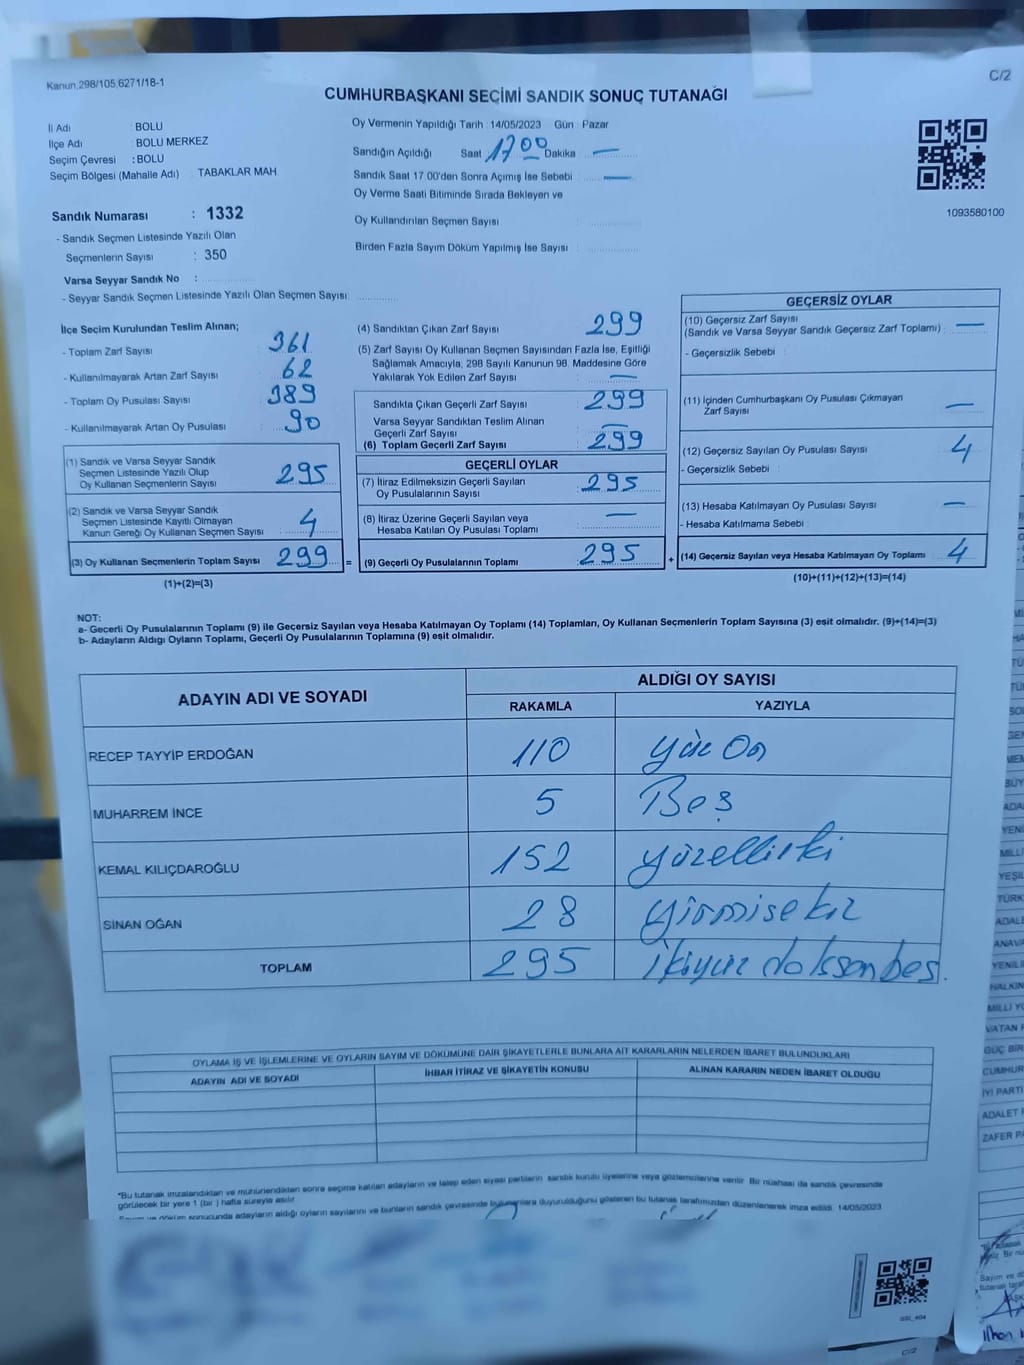 Kanun,298/105,6271/18-1
C/2
CUMHURBAŞKANI SEÇİMİ SANDIK SONUÇ TUTANAĞI
İl Adı : BOLU
İlçe Adı : BOLU MERKEZ
Seçim Çevresi : BOLU
Seçim Bölgesi (Mahalle Adı) : TABAKLAR MAH
Sandık Numarası : 1332
- Sandık Seçmen Listesinde Yazılı Olan
Seçmenlerin Sayısı : 350
Varsa Seyyar Sandık No :
- Seyyar Sandık Seçmen Listesinde Yazılı Olan Seçmen Sayısı:
Oy Vermenin Yapıldığı Tarih : 14/05/2023 Gün : Pazar
Sandığın Açıldığı Saat 17 00 Dakika : —
Sandık Saat 17.00'den Sonra Açımış İse Sebebi : —
Oy Verme Saati Bitiminde Sırada Bekleyen ve
Oy Kullandırılan Seçmen Sayısı :
Birden Fazla Sayım Döküm Yapılmış İse Sayısı :
1093580100
İlçe Seçim Kurulundan Teslim Alınan;
- Toplam Zarf Sayısı : 361
- Kullanılmayarak Artan Zarf Sayısı : 62
- Toplam Oy Pusulası Sayısı : 389
- Kullanılmayarak Artan Oy Pusulası : 90
(1) Sandık ve Varsa Seyyar Sandık
Seçmen Listesinde Yazılı Olup
Oy Kullanan Seçmenlerin Sayısı : 295
(2) Sandık ve Varsa Seyyar Sandık
Seçmen Listesinde Kayıtlı Olmayan
Kanun Gereği Oy Kullanan Seçmen Sayısı : 4
(3) Oy Kullanan Seçmenlerin Toplam Sayısı : 299 =
(1)+(2)=(3)
(4) Sandıktan Çıkan Zarf Sayısı : 299
(5) Zarf Sayısı Oy Kullanan Seçmen Sayısından Fazla İse, Eşitliği
Sağlamak Amacıyla, 298 Sayılı Kanunun 98. Maddesine Göre
Yakılarak Yok Edilen Zarf Sayısı : —
Sandıkta Çıkan Geçerli Zarf Sayısı : 299
Varsa Seyyar Sandıktan Teslim Alınan
Geçerli Zarf Sayısı : —
(6) Toplam Geçerli Zarf Sayısı : 299
GEÇERLİ OYLAR
(7) İtiraz Edilmeksizin Geçerli Sayılan
Oy Pusulalarının Sayısı : 295
(8) İtiraz Üzerine Geçerli Sayılan veya
Hesaba Katılan Oy Pusulası Toplamı : —
(9) Geçerli Oy Pusulalarının Toplamı : 295 +
GEÇERSİZ OYLAR
(10) Geçersiz Zarf Sayısı
(Sandık ve Varsa Seyyar Sandık Geçersiz Zarf Toplamı) : —
- Geçersizlik Sebebi :
(11) İçinden Cumhurbaşkanı Oy Pusulası Çıkmayan
Zarf Sayısı : —
(12) Geçersiz Sayılan Oy Pusulası Sayısı : 4
- Geçersizlik Sebebi :
(13) Hesaba Katılmayan Oy Pusulası Sayısı : —
- Hesaba Katılmama Sebebi :
(14) Geçersiz Sayılan veya Hesaba Katılmayan Oy Toplamı : 4
(10)+(11)+(12)+(13)=(14)
NOT:
a- Gecerli Oy Pusulalarının Toplamı (9) ile Geçersiz Sayılan veya Hesaba Katılmayan Oy Toplamı (14) Toplamları, Oy Kullanan Seçmenlerin Toplam Sayısına (3) eşit olmalıdır. (9)+(14)=(3)
b- Adayların Aldığı Oyların Toplamı, Geçerli Oy Pusulalarının Toplamına (9) eşit olmalıdır.
ADAYIN ADI VE SOYADI
ALDIĞI OY SAYISI
RAKAMLA YAZIYLA
RECEP TAYYİP ERDOĞAN 110 Yüz On
MUHARREM İNCE 5 Beş
KEMAL KILIÇDAROĞLU 152 Yüzelliiki
SİNAN OĞAN 28 Yirmisekiz
TOPLAM 295 İkiyüz doksanbeş.
OYLAMA İŞ VE İŞLEMLERİNE VE OYLARIN SAYIM VE DÖKÜMÜNE DAİR ŞİKAYETLERLE BUNLARA AİT KARARLARIN NELERDEN İBARET BULUNDUKLARI
ADAYIN ADI VE SOYADI İHBAR İTİRAZ VE ŞİKAYETİN KONUSU ALINAN KARARIN NEDEN İBARET OLDUĞU
*Bu tutanak imzalandıktan ve mühürlendikten sonra seçime katılan adayların ve talep eden siyasi partilerin sandık kurulu üyelerine veya gözlemcilerine verilir. Bir nüshası da sandık çevresinde
görülecek bir yere 1 (bir) hafta süreyle asılır.
Sayım ve döküm sonucunda adayların aldığı oyların sayılarını ve bunların sandık çevresinde bulunanlara duyurulduğunu gösteren bu tutanak tarafımızdan düzenlenerek imza edildi. 14/05/2023
C/2